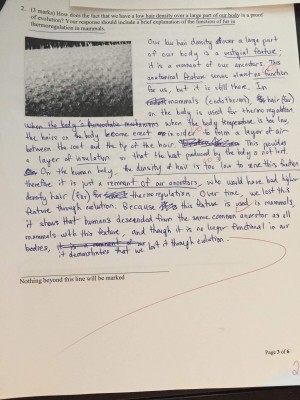 2. (3 marks) How does the fact that we have a low hair density over a large part of our body is a proof
of evolution? Your response should include a brief explanation of the function of fur in
thermoregulation in mammals.
Our low hair density over a large part
of our body is a vestigial feature;
it is a remnant of our ancestors. This
anatomical feature serves almost no function
for us, but it is still there. In
mammals (endotherms), hair (fur)
on the body is used for thermoregulation
When the body's when the body temperature is too low,
the hairs on the body become erect in order to form a layer of air
between the root and the tip of the hair. This provides
a layer of insulation so that the heat produced by the body is not lost.
On the human body, the density of hair is too low to serve this function
therefore it is just a remnant of our ancestors, who would have had higher
density hair (fur) for thermoregulation. Over time, we lost this
feature through evolution. Because this feature is used in mammals,
it shows that humans descended from the same common ancestor as all
mammals with this feature, and though it is no longer functional in our
bodies, it demonstrates that we lost it through evolution.
Nothing beyond this line will be marked
Page 3 of 6
2